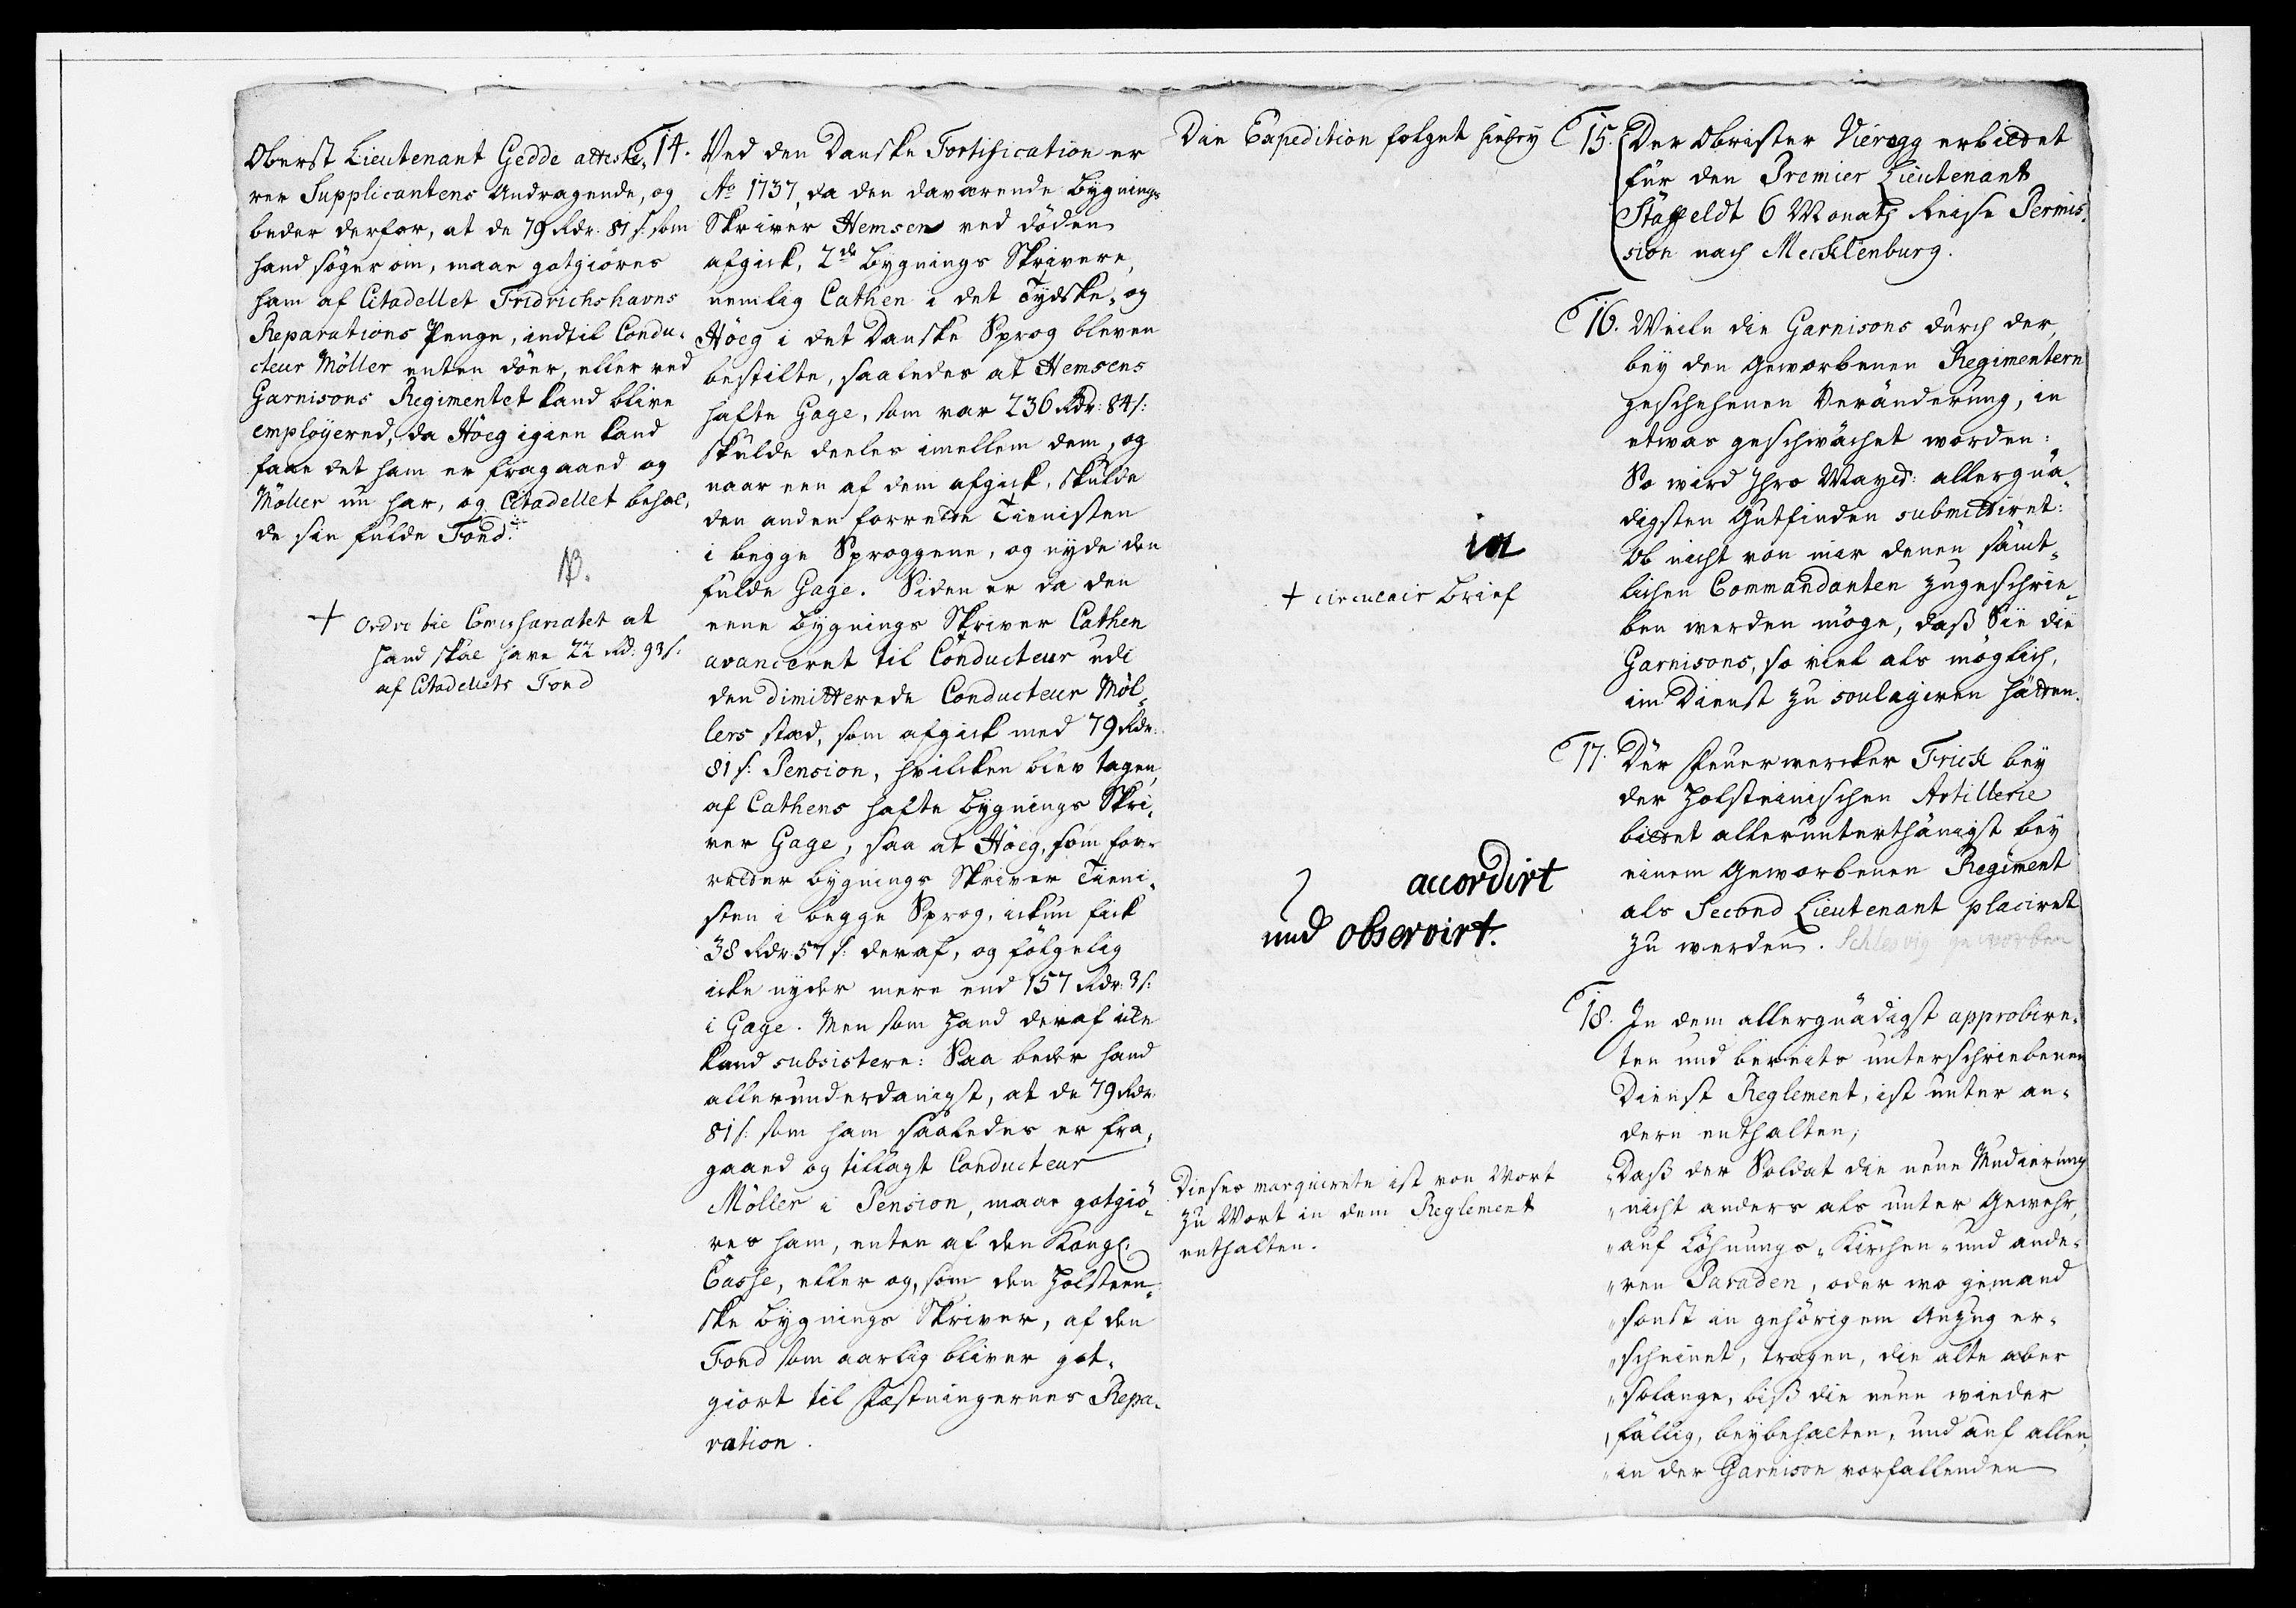 Oberst Lieutenant Gedde atteste-
rer Supplicantens Andragende, og
beder derfor, at de 79 Rdr. 81 s. som
hand söger om, maae gotgiöres
ham af Citadellet Fridrichshavns
Reparations Penge, indtil Condu-
cteur Möller enten döer, eller ved
Garnisons Regimentet kand blive
employered, da Höeg igien kand
faae det ham er fragaaed og
Möller nu har, og Citadellet behol-
de sin fulde Fond.
NB.
+ Ordre til Commissariatet at
hand skal have 22 Rd. 93 s.
af Citadellets Fond
14. Ved den Danske Fortification er
Ao 1737, da den daværende Bygnings
Skriver Hemsen ved döden
afgick, 2de Bygnings Skrivere,
nemlig Cathen i det Tydske- og
Höeg i det Danske Sprog bleven
bestilte, saaledes at Hemsens
hafte Gage, som var 236 Rdr: 84 s:
skulde deeles imellem dem, og
naar een af dem afgick, skulde
den anden forrette Tienisten
i begge Sproggene, og nyde den
fulde Gage. Siden er da den
eene Bygnings Skriver Cathen
avanceret til Conducteur udi
den dimitterede Conducteur Möl-
lers stæd, som afgick med 79 Rdr:
81 s: Pension, hvilcken blev tagen,
af Cathens hafte Bygnings Skri-
ver Gage, saa at Höeg, som for-
retter Bygnings Skriver Tieni-
sten i begge Sprog, ickun fick
38 Rdr 57 s: deraf, og fölgelig
icke nyder mere end 157 Rdr: 3 s:
i Gage. Men som Hand deraf icke
kand subsistere: Saa beder hand
allerunderdanigst, at de 79 Rdr:
81 s: som ham saaledes er fra-
gaaed og tillagt Conducteur
Möller i Pension, maae gotgiö-
res ham, enten af den Kongl:
Casse, eller og, som den Holsteen-
ske Bygnings Skriver, af den
Fond som aarlig bliver got-
giort til Fæstningernes Repa-
ration.
Die Expedition folget hiebey
in
+ circulair Brief
accordirt
und observirt.
Dieses marquirete ist von Wort
zu Wort in dem Reglement
enthalten.
15. Der Obrister Vieregg erbittet
für den Premier Lieutenant
Staffeldt 6 Monath Reise Permis-
sion nach Mecklenburg.
16. Weiln die Garnisons durch der,
bey den Geworbenen Regimentern
geschehenen Veränderung, in
etwas geschwächet worden:
So wird Ihro Mayst: allergnä-
digsten Gutfinden submittiret:
Ob nicht von mir denen sämt-
lichen Commandanten zugeschrie-
ben werden möge, daß Sie die
Garnisons, so viel als möglich,
im Dienst zu soulagiren hätten.
17. Der Feuerwercker Frick bey
der Holsteinischen Artillerie
bittet allerunterthänigst bey
einem Geworbenen Regiment
als Second Lieutenant placiret
zu werden. Schlesvig geworben
18. In dem allergnädigst approbire-
ten und bereits unterschriebenen
Dienst Reglement, ist unter an-
dern enthalten;
„Daß der Soldat die neue Mudierung
„nicht anders als unter Gewehr,
„auf Löhnungs- Kirchen- und ande-
„ren Paraden, oder wo jemand
„sonst in gehörigem Anzug er-
„scheinet, tragen, die alte aber
„solange, biß die neue wieder
„fällig, beybehalten, und auf allen,
„in der Garnison vorfallenden